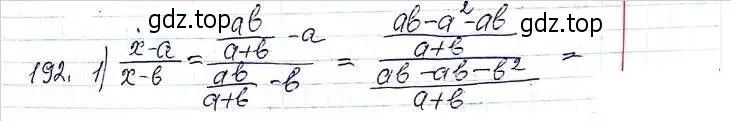 192. 1) \frac{x-a}{x-b} = \frac{\frac{ab}{a+b} - a}{\frac{ab}{a+b} - b} = \frac{\frac{ab-a^2-ab}{a+b}}{\frac{ab-ab-b^2}{a+b}} =
gdz.top
gdz.top
gdz.top
gdz.top